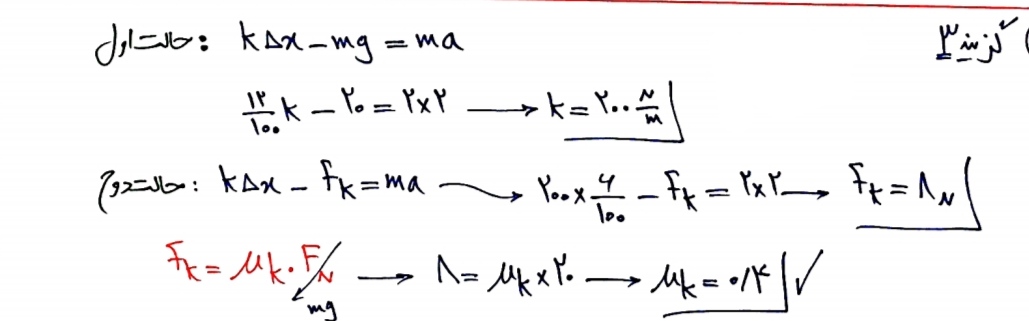 گزینه ۳
حالت اول: k∆x - mg = ma
۱۲/۱۰۰ k - ۲۰ = ۲×۲ → k = ۲۰۰ N/m
حالت دوم: k∆x - fk = ma → ۲۰۰ × ۶/۱۰۰ - fk = ۲×۲ → fk = ۸ N
fk = μk . FN → ۸ = μk × ۲۰ → μk = ۰/۴ ✓
mg